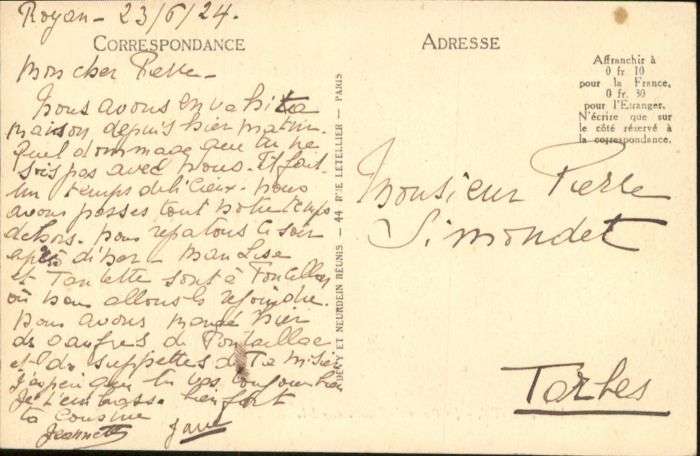 Royan - 23/6/24.
CORRESPONDANCE
Mon cher Pierre -
Nous avons envahi ta
maison depuis hier matin.
Quel dommage que tu ne
sois pas avec nous. Il fait
un temps délicieux. nous
avons passés tout notre temps
dehors. nous repartons ce soir
après dîner -
et sont à Pontaillac
où nous allons les rejoindre.
nous avons mangé hier
des gaufres de Pontaillac
et des sucettes de
j'espère que tu vas toujours bien
Je t'embrasse bien fort
ta cousine
Jeannette
DÉVY ET NEURDEIN RÉUNIS - 44 RUE LETELLIER - PARIS
ADRESSE
Affranchir à
0 fr. 10
pour la France,
0 fr. 30
pour l'Etranger.
N'écrire que sur
le côté réservé à
la correspondance.
Monsieur Pierre
Simondet
Tarbes